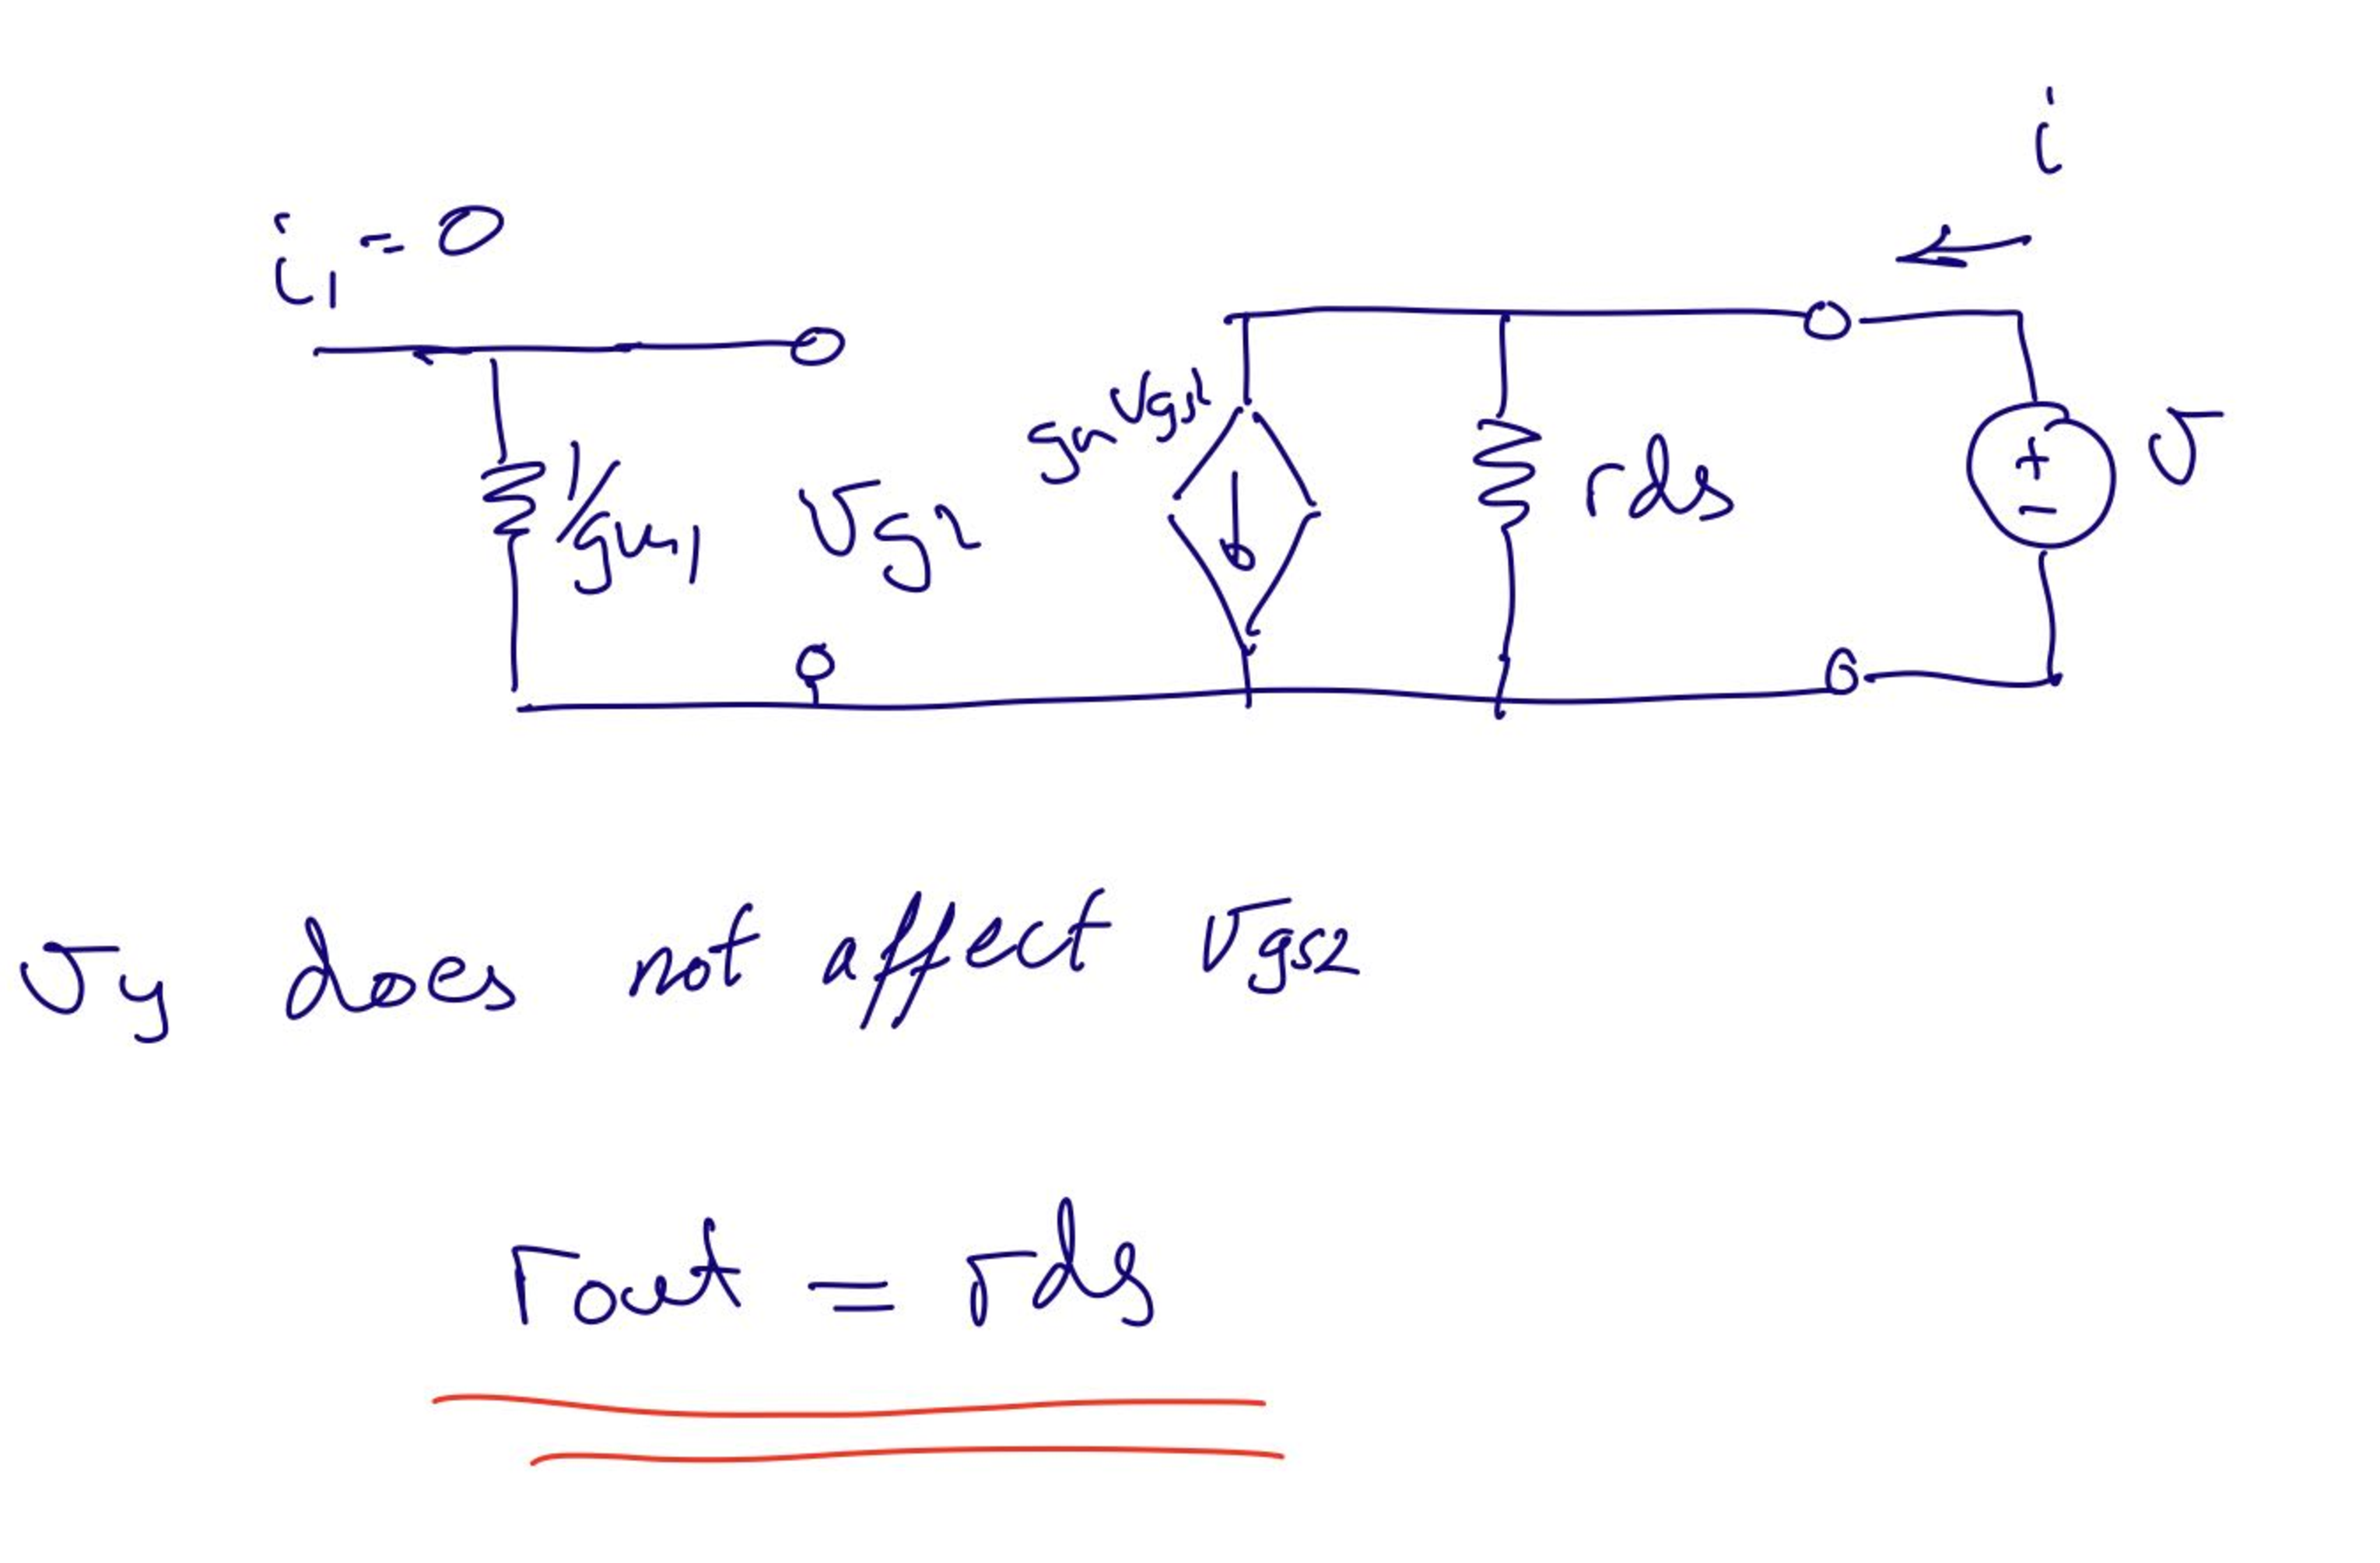 i
i₁ = 0
gm Vgs2
1/gm1
Vgs2
rds
+
−
v
vy does not affect Vgs2
rout = rds